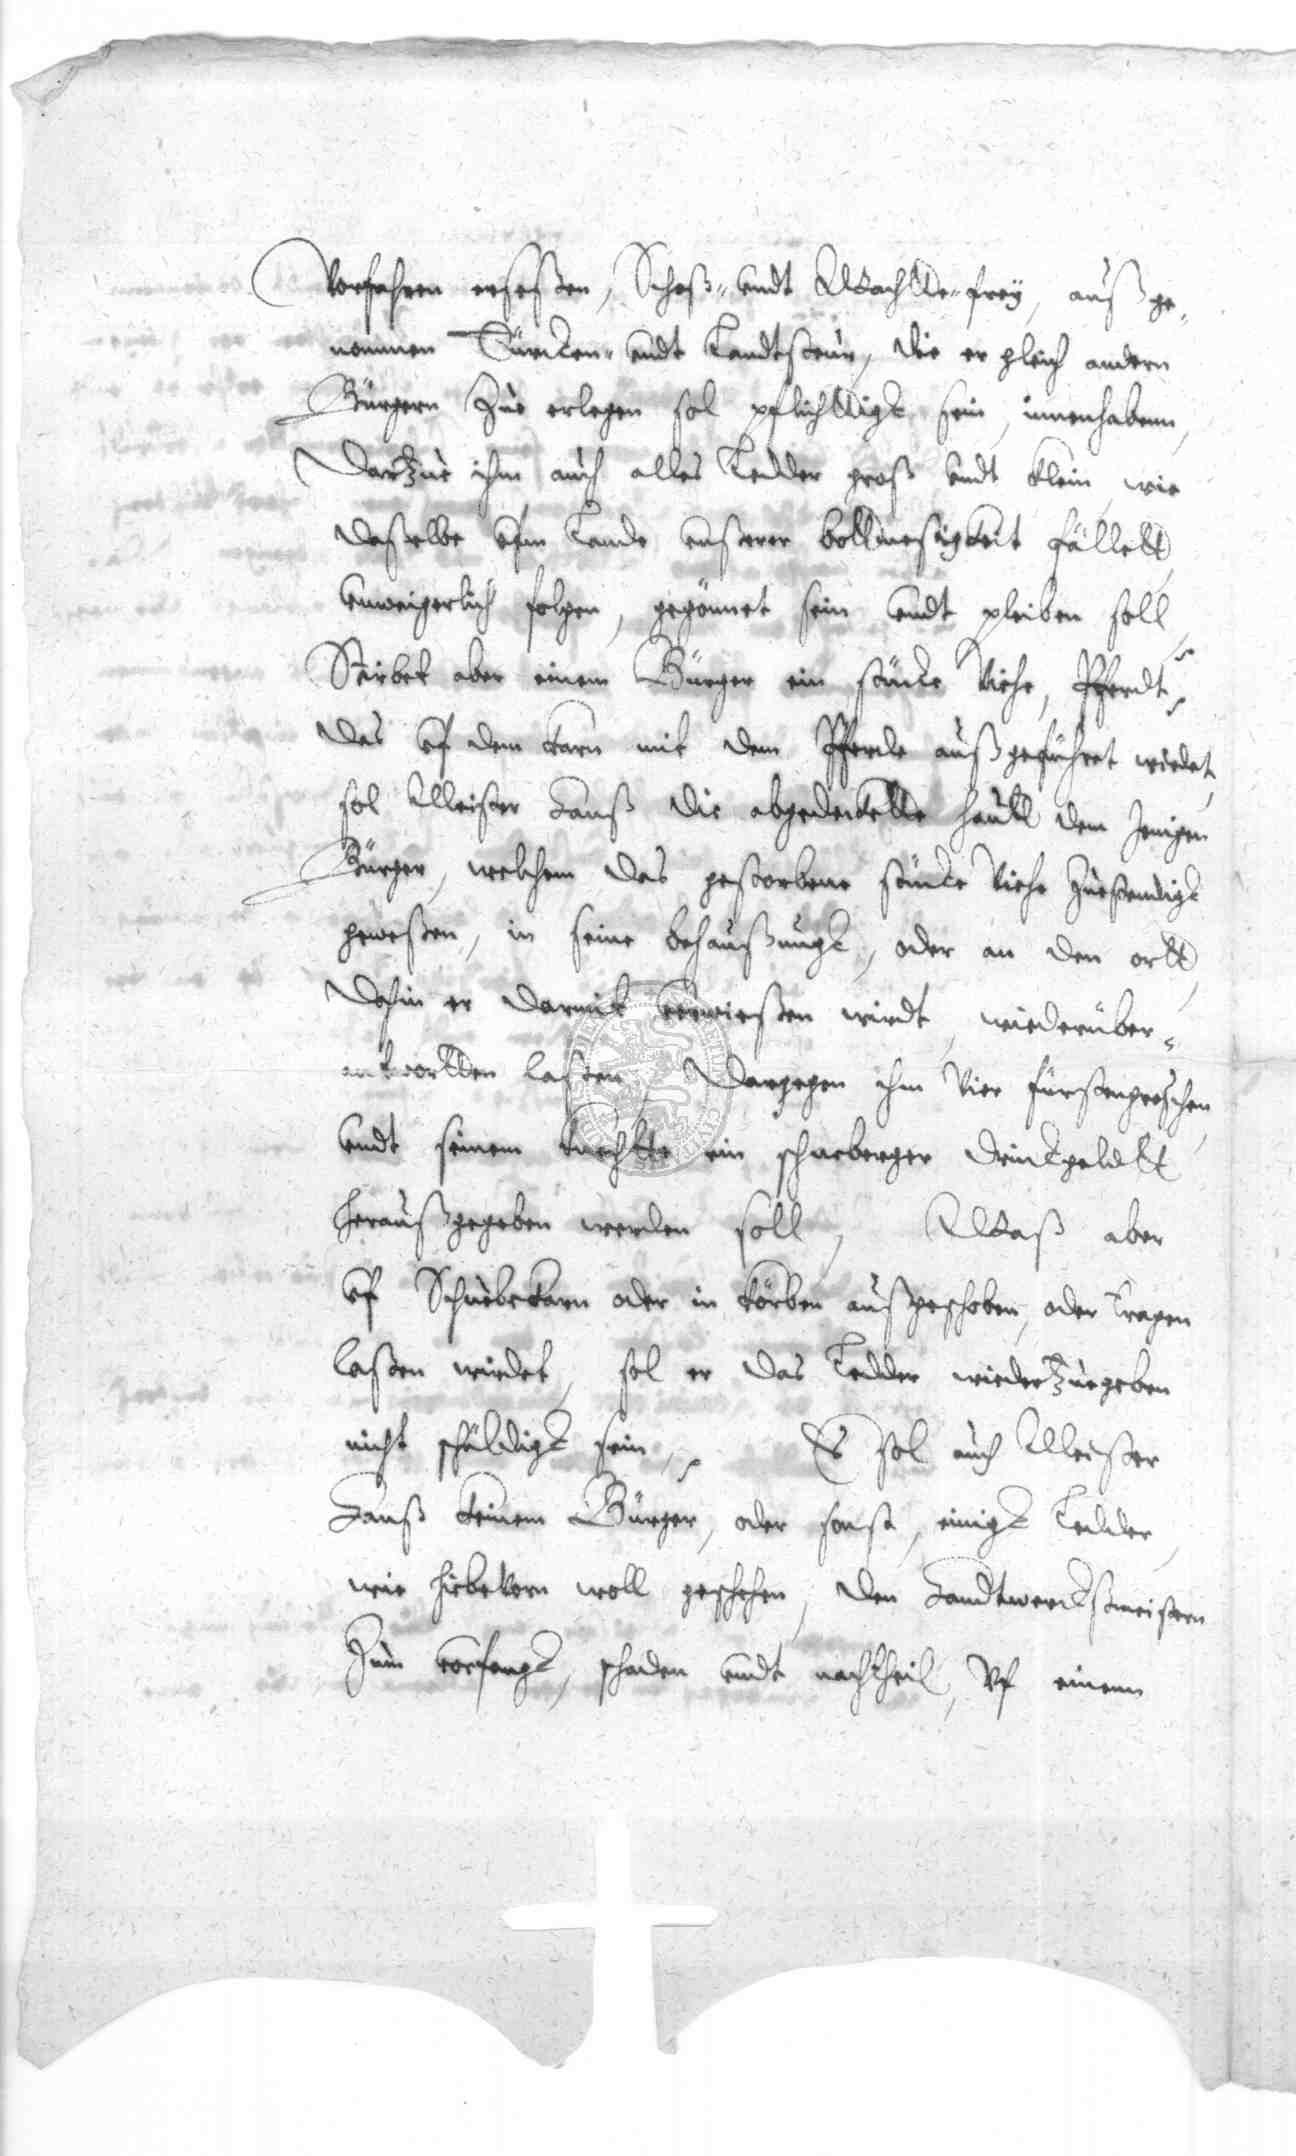 Vorfahren erseßen, Schoß- undt Wachtte-frey, außge-
nommen Türcken- undt Landtsteur, die er gleich andern
Bürgern Zue erlegen sol pflichttigk sein, innenhabenn,
Darzue ihm auch alles Ledder groß undt klein, wie
daßelbe ufm Lande unserer bottmeßigkeit fällett
unweigerlich folgen, gegönnet sein undt pleiben soll,
Stirbet aber einem Bürger ein stücke Viehe, Pferdt,
das uf dem karn mit dem Pferde außgeführet wirdet,
sol Meister Hanß die abgedecktte hautt dem Jenigen
Bürger, welchem das gestorbene stücke Viehe Zuestendigk
geweßen, in seine behaußungk, oder an den ortt,
dahin er darmit verwießen wirdt, wiederüber-
antwortten laßen, Dargegen ihm Vier fürstengroschen,
undt seinem knechtte ein schreberger Drinckgeldtt
heraußgegeben werden soll, Waß aber
uf Schubekarn oder in körben außgeschoben, oder tragen
laßen wirdet, sol er das Ledder wiederZuegeben
nicht schuldigk sein, Es sol auch Meister
Hanß keinem Bürger, oder sonst, einigk Ledder,
wie hirbevorn woll geschehen, den Handtwercksmeistern
Zum vorfangk, schaden undt nachtheil, Uf einem